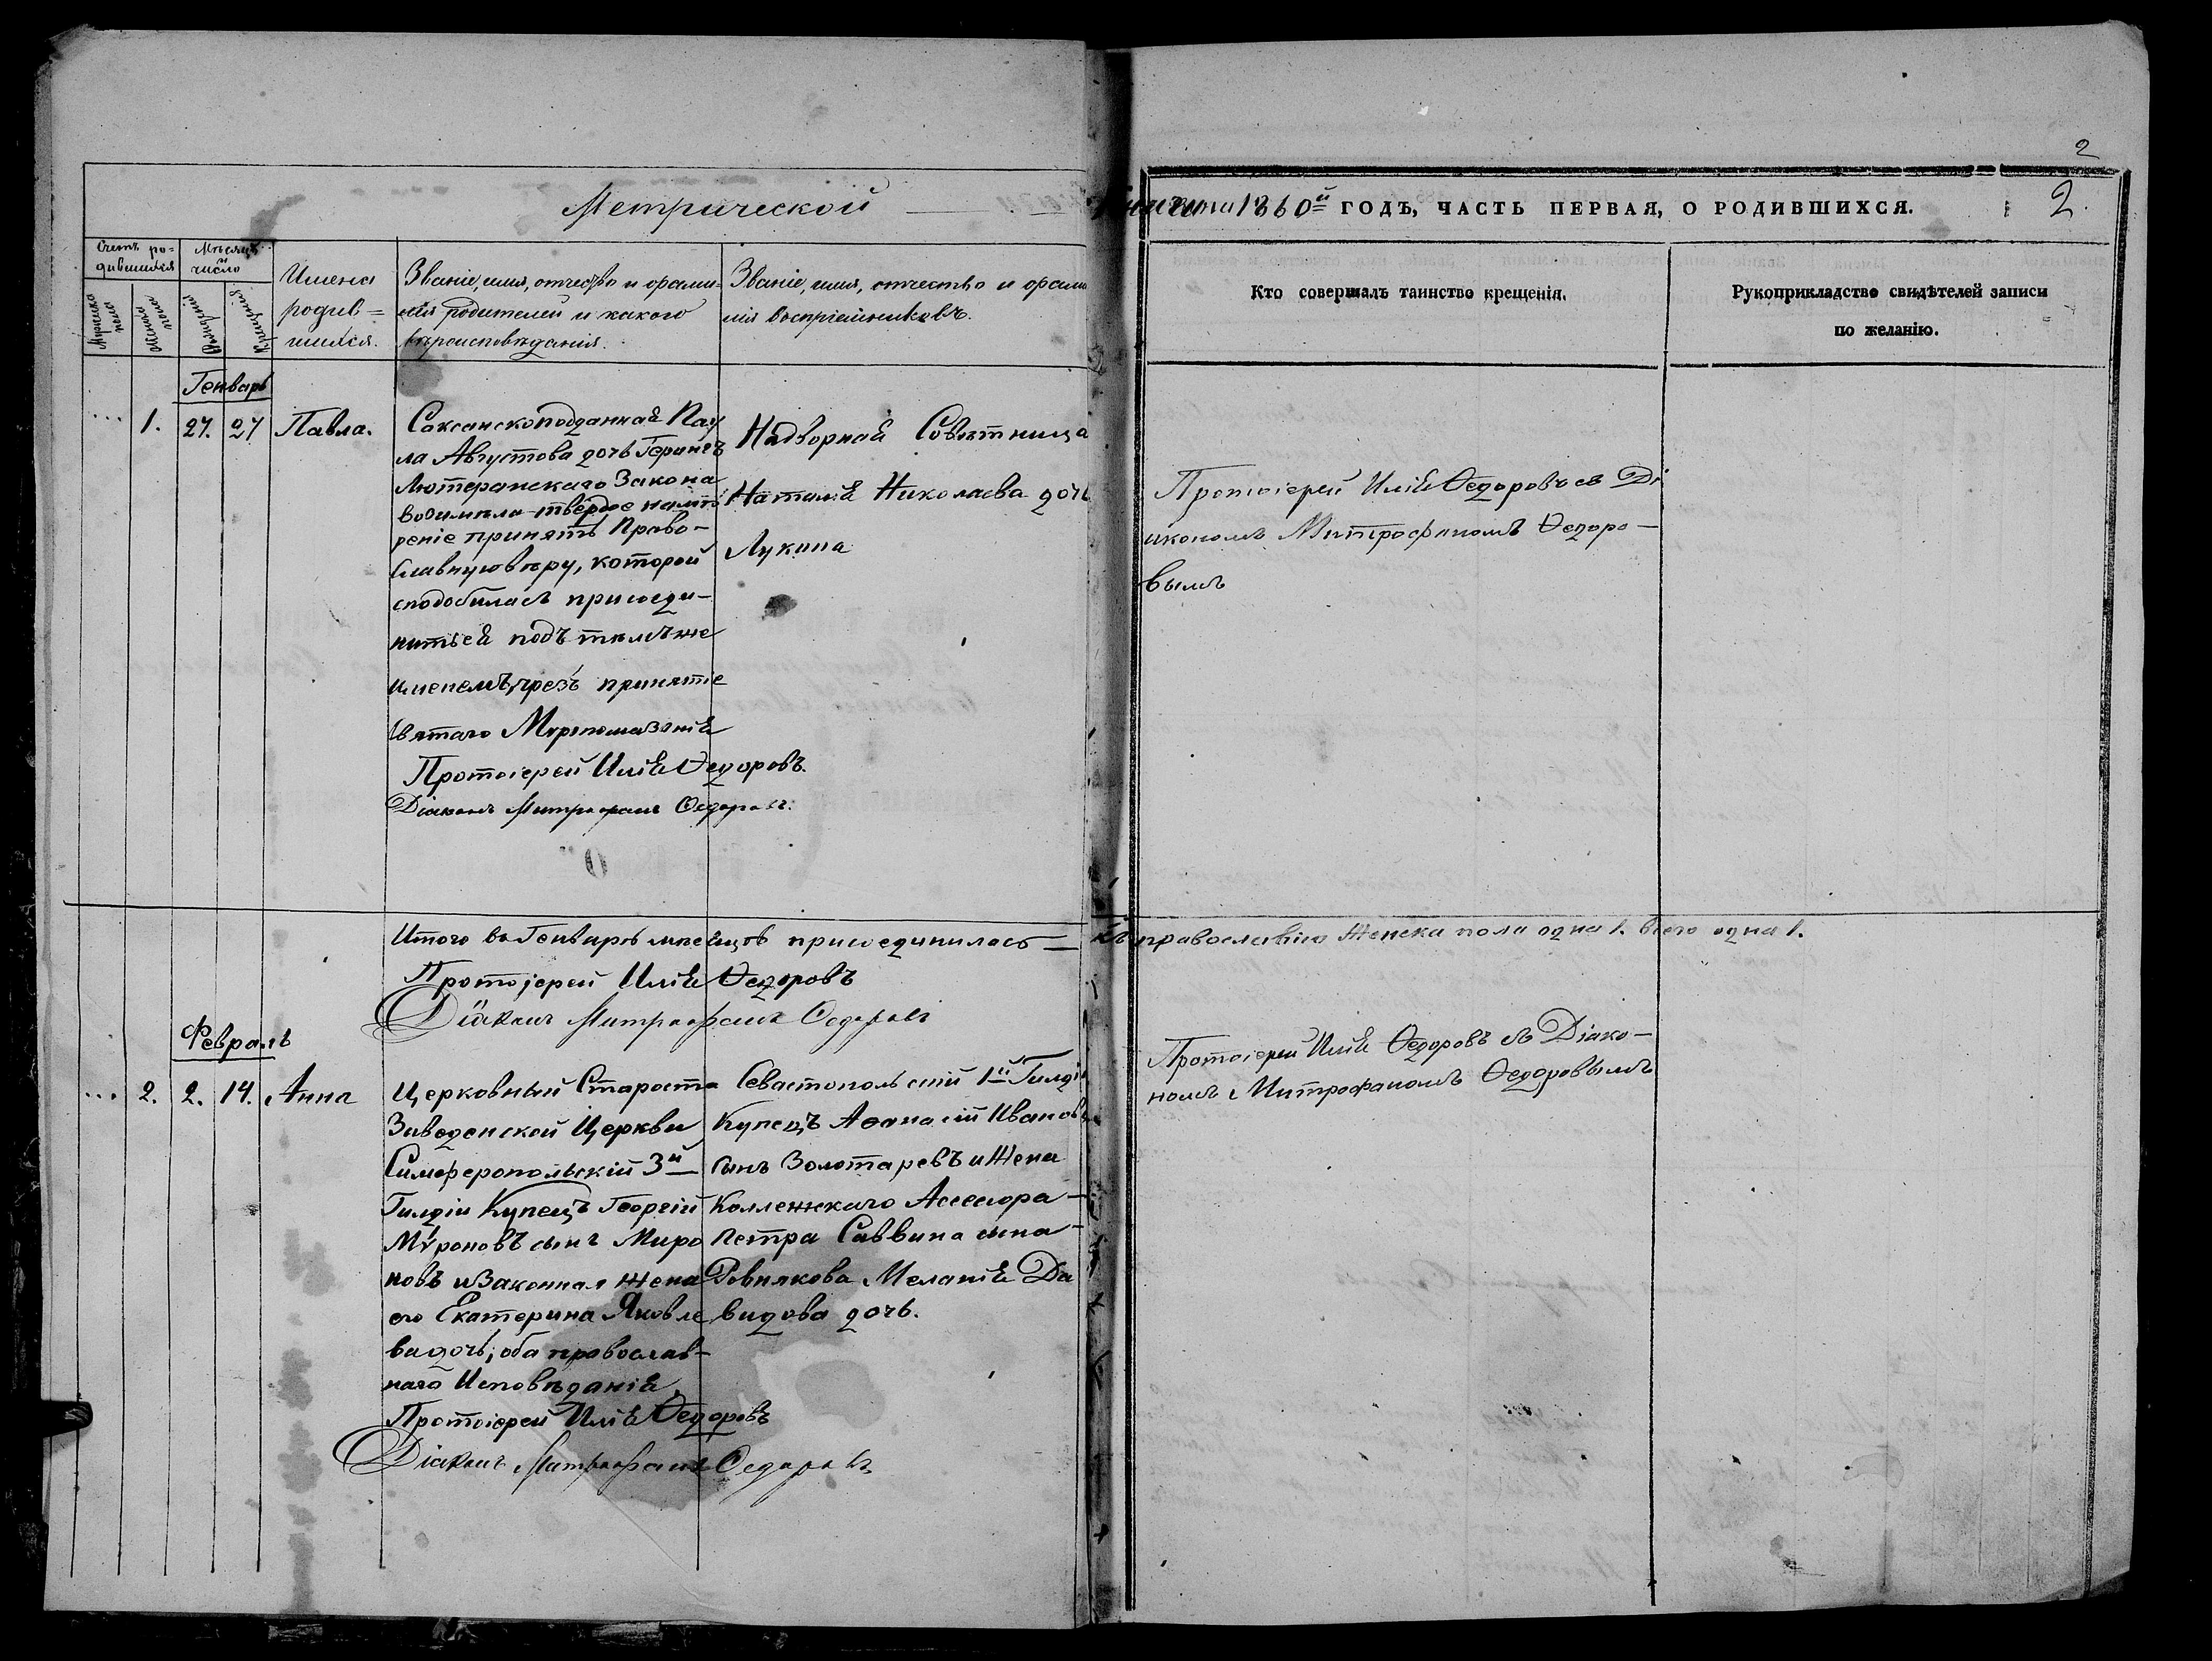 2
Метрической
книги на 1860й ГОДЪ, ЧАСТЬ ПЕРВАЯ, О РОДИВШИХСЯ.
2.
Счетъ ро=
дившихся
Мѣсяцъ
и
число
Мужеска
пола
Женска
пола
Рожденія
Крещенія
Имена
родив=
шихся.
Званіе, имя, отчество и фами=
лія родителей и какого
вѣроисповѣданія.
Званіе, имя, отчество и фами
лія воспріемниковъ.
Кто совершалъ таинство крещенія.
Рукоприкладство свидѣтелей записи
по желанію.
Генварь
1. 27. 27 Павла.
Саксанскоподданная Пау
ла Августова дочь Герингъ
Лютеранскаго Закона
возимѣла твердое намѣ
реніе принять Право-
славную вѣру, которой
сподобилась присоеди-
нитьея подъ тѣмъ же
именемъ, чрезъ принятіе
святаго Мѵропомазанія
Протоіерей Илія Ѳедоровъ.
Діаконъ Митрофанъ Ѳедоровъ.
Надворная Совѣтница
Наталія Николаева дочь
Лукина
Протоіерей Илія Ѳедоровъ съ Ді
акономъ Митрофаномъ Ѳедоро-
вымъ
Итого въ Генварѣ мѣсяцѣ присоединилось —
къ православію Женска пола одна 1. всего одна 1.
Протоіерей Илія Ѳедоровъ
Діаконъ Митрофанъ Ѳедоровъ
Февраль
2. 2. 14. Анна
Церковный Староста
Введенской Церкви
Симферопольскій 3й
Гилдіи Купецъ Георгій
Мѵроновъ сынъ Миро
новъ и Законная жена
его Екатерина Яковле
ва дочь; оба православ-
наго Исповѣданія.
Протоіерей Илія Ѳедоровъ
Діаконъ Митрофанъ Ѳедоровъ
Севастопольскій 1й Гилдіи
Купецъ Аѳанасій Ивановъ
сынъ Золотаревъ и Жена
Коллежскаго Ассесора —
Петра Саввина сына —
Ровнякова Меланія Да
видова дочь.
Протоіерей Илія Ѳедоровъ съ Діако-
номъ Митрофаномъ Ѳедоровымъ